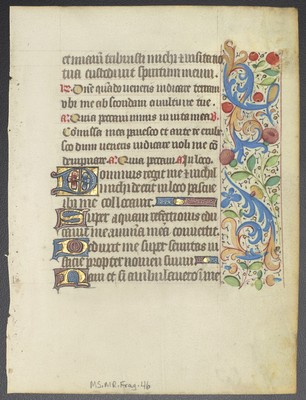 et miam tribuisti michi et visitatio
tua custodivit spiritum meum.
Dñe quãdo veneris iudicare terram
ubi me abscondam a vultu ire tue.
Quia peccavi nimis in vita mea
Comissa mea pavesco et ante te erubes
co dum veneris iudicare noli me cõ
dempnare Quia peccavi
Dominus regit me et nichil
michi deerit in loco pascue
ibi me collocavit.
Super aquam refectionis edu
cavit me, animã meã convertit.
Deduxit me super semitas iu
sticie propter nomen suum
Nam et si ambulavero ĩ me
MS.MR.Frag.46